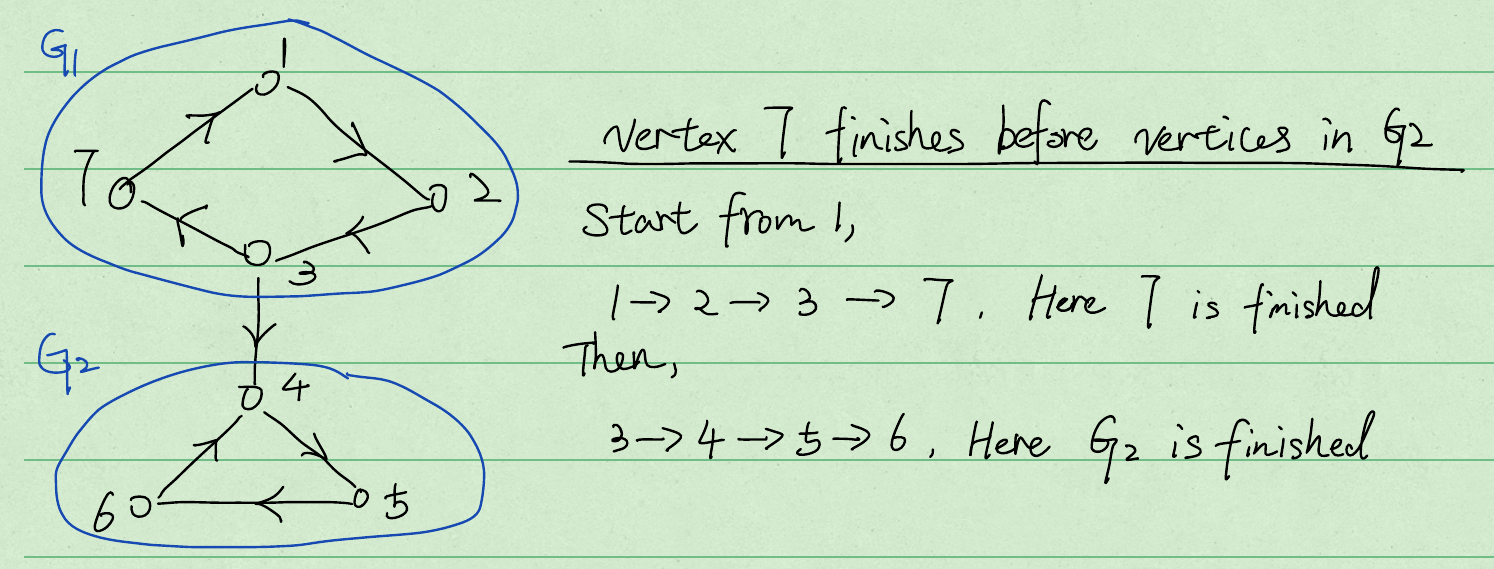 G1
1
7
2
3
G2
4
6
5
Vertex 7 finishes before vertices in G2
Start from 1,
1 → 2 → 3 → 7. Here 7 is finished
Then,
3 → 4 → 5 → 6, Here G2 is finished